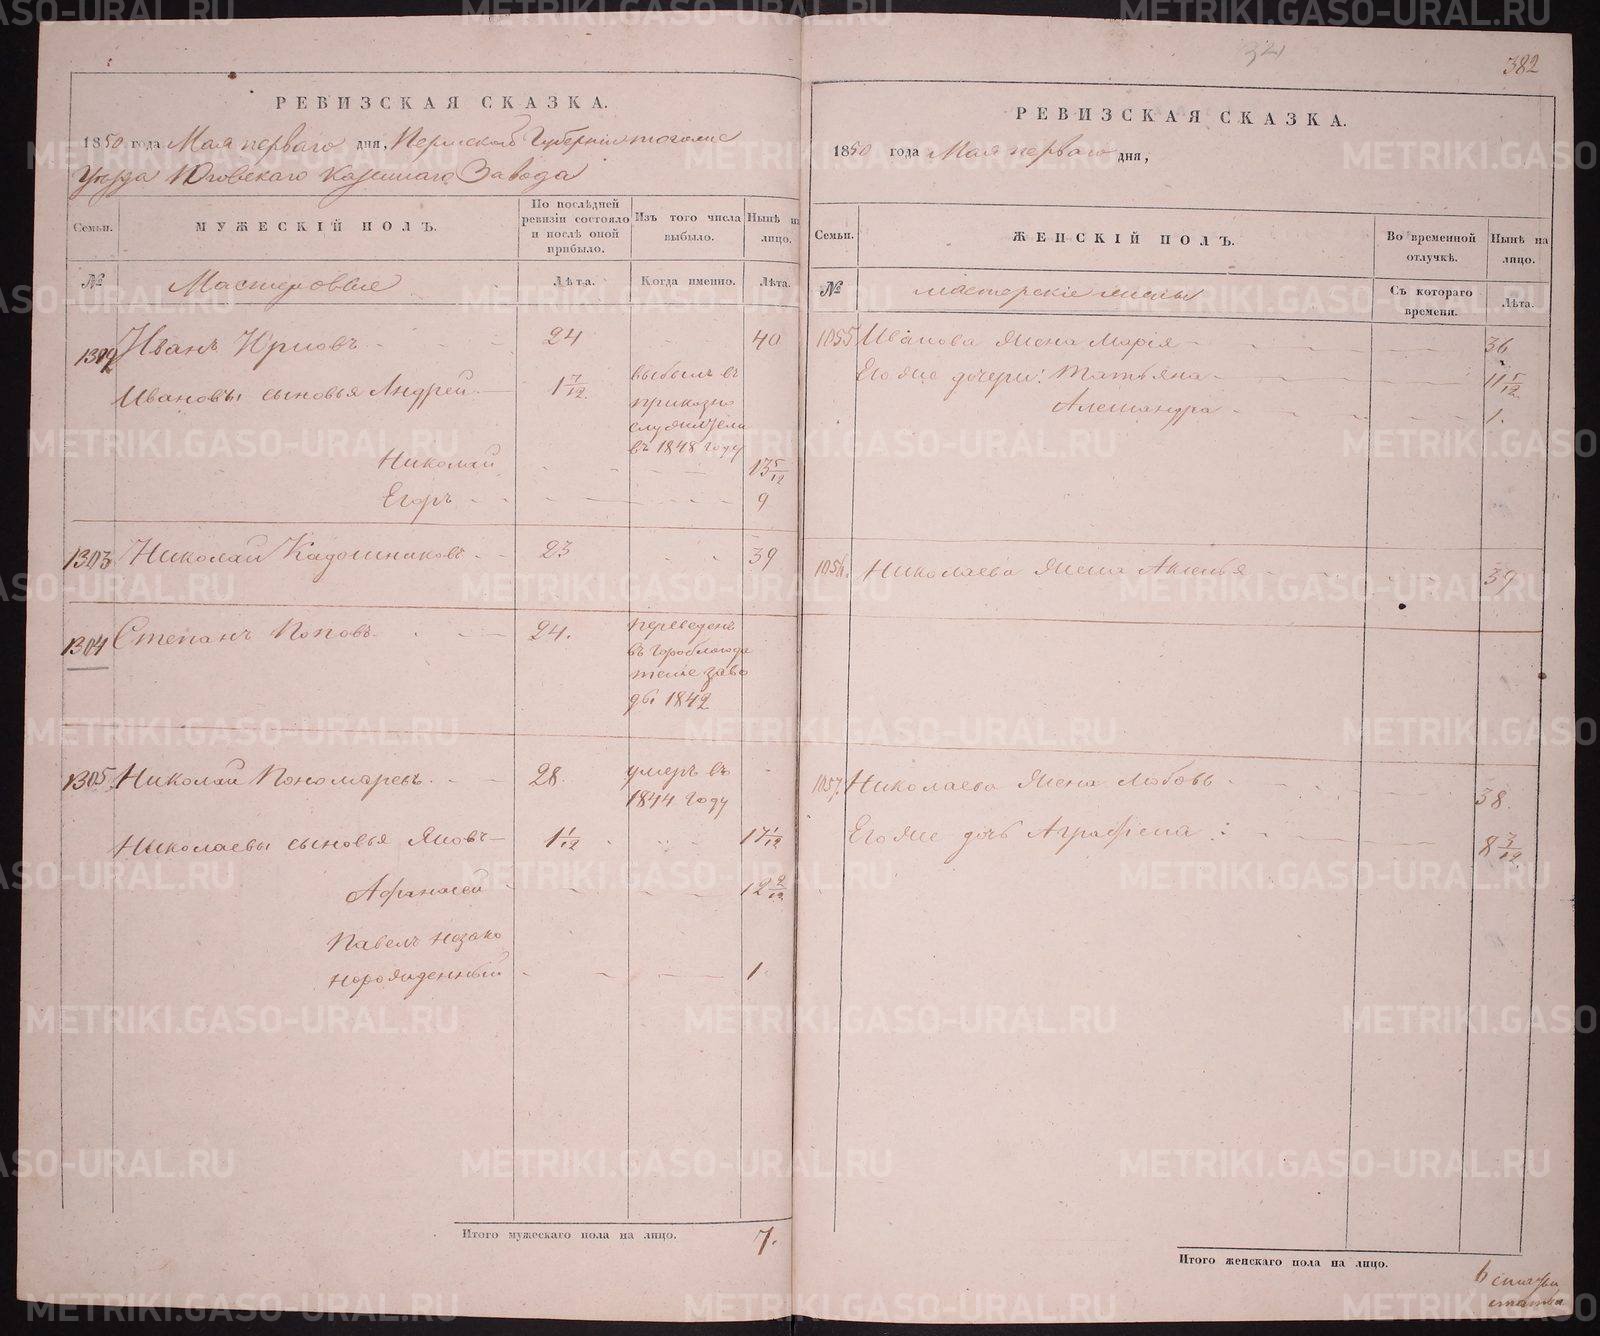 РЕВИЗСКАЯ СКАЗКА.
1850 года Мая перваго дня, Пермской Губернии тогоже
Уезда Юговскаго Казеннаго Завода
Семьи. МУЖЕСКІЙ ПОЛЪ. По послѣдней ревизіи состояло и послѣ оной прибыло. Изъ того числа выбыло. Нынѣ на лицо.
№ Мастеровые Лѣта. Когда именно. Лѣта.
1302 Иванъ 24 40
Ивановы сыновья Андрей 1 7/12 выбылъ въ
приказно
служители
въ 1848 году
Николай 13 5/12
Егоръ 9
1303 Николай Кадошниковъ 23 39
1304 Степанъ Поповъ 24. переведенъ
въ Гороблагода
тскіе заво
ды 1842
1305 Николай Пономаревъ 28. умеръ въ
1844 году
Николаевы сыновья Яковъ 1 1/12 17 1/12
Афанасей 12
Павелъ незако
норожденный 1
Итого мужескаго пола на лицо. 7.
34
382
РЕВИЗСКАЯ СКАЗКА.
1850 года Мая перваго дня,
Семьи. ЖЕНСКІЙ ПОЛЪ. Во временной отлучкѣ. Нынѣ на лицо.
№ мастерскіе жены Съ котораго времени. Лѣта.
1055 Иванова жена Марія 36
Его же дочери: Татьяна 11 5/12
Александра 1.
1056. Николаева жена Аксинья 39
1057. Николаева жена Любовь 38.
Его же дочь Аграфена 8 3/12
Итого женскаго пола на лицо. 6
METRIKI.GASO-URAL.RU